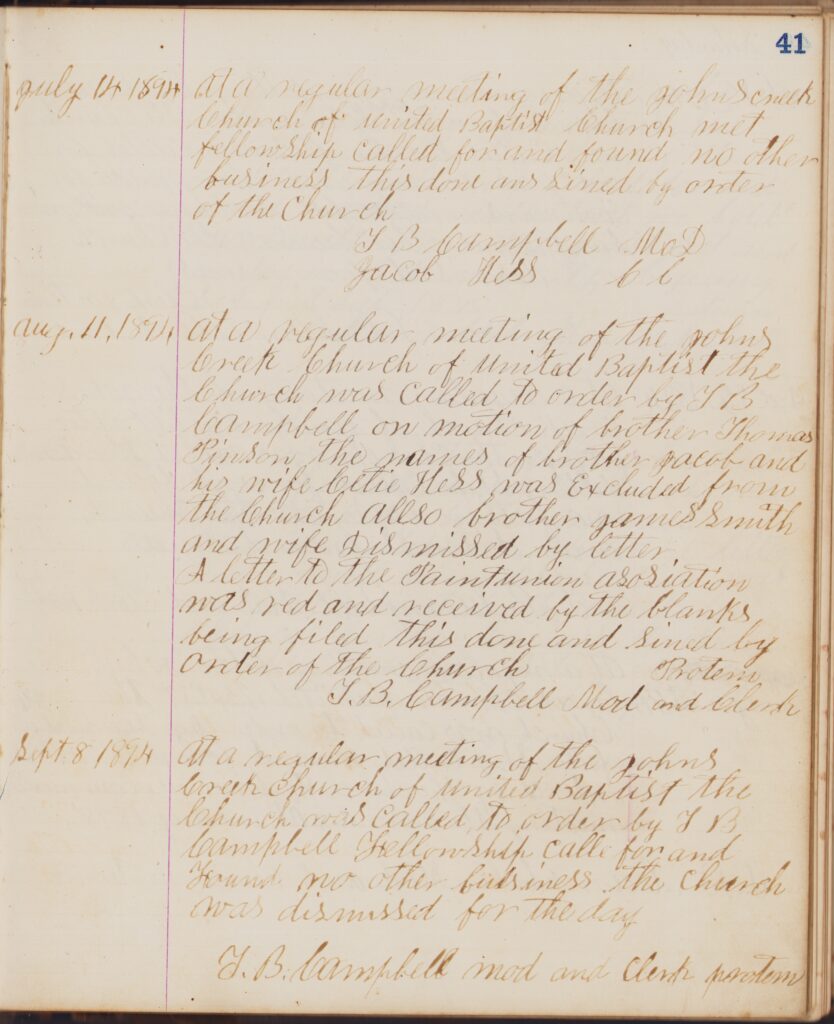 41
July 14 1894 at a regular meeting of the Johns creek
Church of united Baptist Church met
fellowship called for and found no other
business this done ans sined by order
of the Church
T B Campbell Mod
Jacob Hess C C
aug. 11, 1894 at a regular meeting of the Johns
Creek Church of united Baptist the
Church was called to order by T B
Campbell on motion of brother Thomas
Pinson the names of brother Jacob and
his wife Cetie Hess was Excluded from
the Church allso brother James Smith
and wife Dismissed by letter
A letter to the Paintunion asosiation
was red and received by the blanks
being filed this done and sined by
order of the Church Protem
T. B. Campbell Mod and Clerk
Sept. 8 1894 at a regular meeting of the Johns
Creek Church of united Baptist the
Church was called to order by T B
Campbell Fellowship calle for and
Found no other buisiness the church
was dismissed for the day
T. B. Campbell mod and Clerk protem